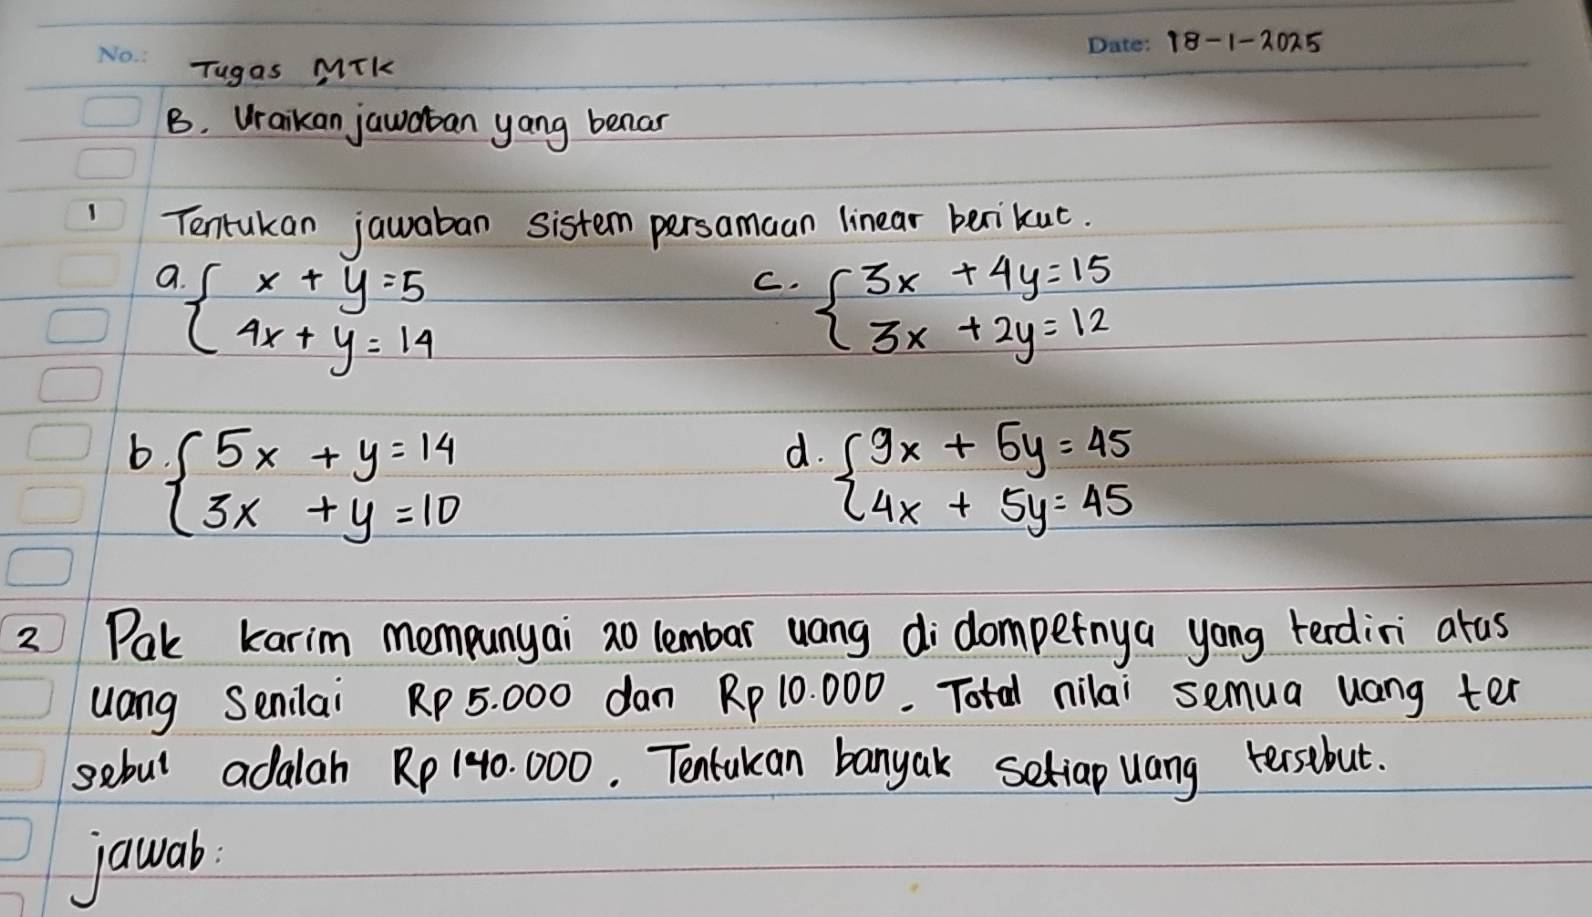 No.:
Date: 18-1-2025
Tugas MTK
B. Uraikan jawaban yang benar
1 Tentukan jawaban sistem persamaan linear berikut.
a. { x + y = 5
4x + y = 14
c. { 3x + 4y = 15
3x + 2y = 12
b. { 5x + y = 14
3x + y = 10
d. { 9x + 5y = 45
4x + 5y = 45
2 Pak karim mempunyai 20 lembar uang di dompetnya yang terdiri atas
uang senilai Rp 5.000 dan Rp 10.000. Total nilai semua uang ter
sebut adalah Rp 140.000. Tentukan banyak setiap uang tersebut.
jawab: